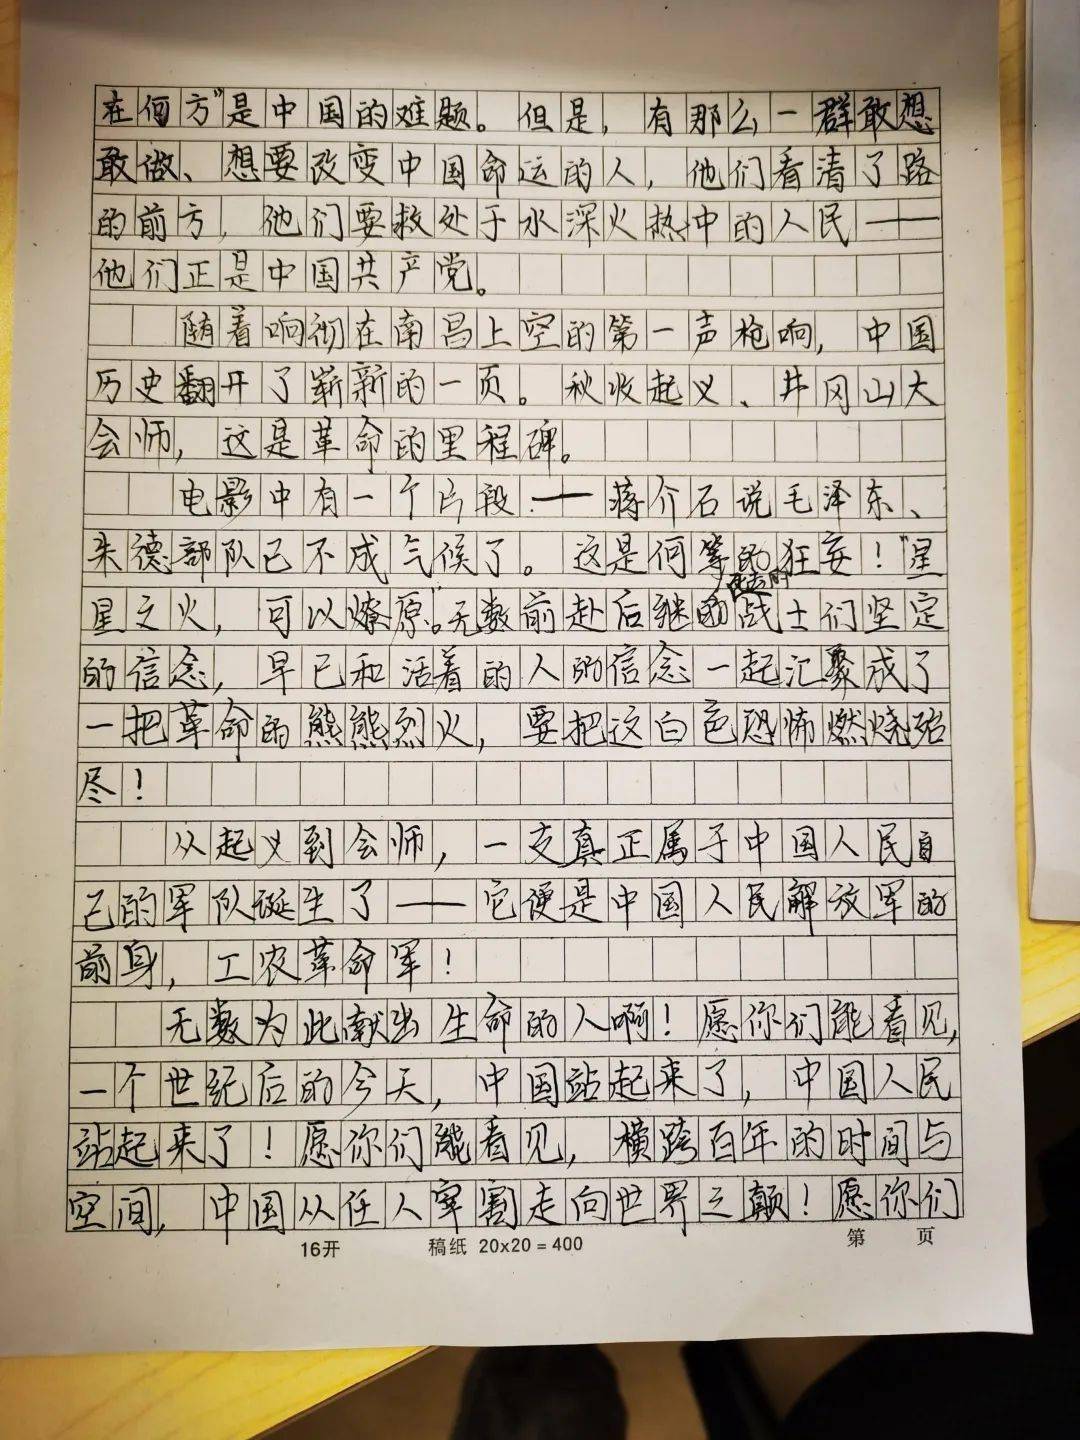 在何方”是中国的难题。但是，有那么一群敢想
敢做、想要改变中国命运的人，他们看清了路
的前方，他们要救处于水深火热中的人民——
他们正是中国共产党。
随着响彻在南昌上空的第一声枪响，中国
历史翻开了崭新的一页。秋收起义、井冈山大
会师，这是革命的里程碑。
电影中有一个片段——蒋介石说毛泽东、
朱德部队已不成气候了。这是何等的狂妄！“星
死去的
星之火，可以燎原”。无数前赴后继的战士们坚定
的信念，早已和活着的人的信念一起汇聚成了
一把革命的熊熊烈火，要把这白色恐怖燃烧殆
尽！
从起义到会师，一支真正属于中国人民自
己的军队诞生了——它便是中国人民解放军的
前身，工农革命军！
无数为此献出生命的人啊！愿你们能看见，
一个世纪后的今天，中国站起来了，中国人民
站起来了！愿你们能看见，横跨百年的时间与
空间，中国从任人宰割走向世界之巅！愿你们
16开 稿纸 20x20=400 第 页